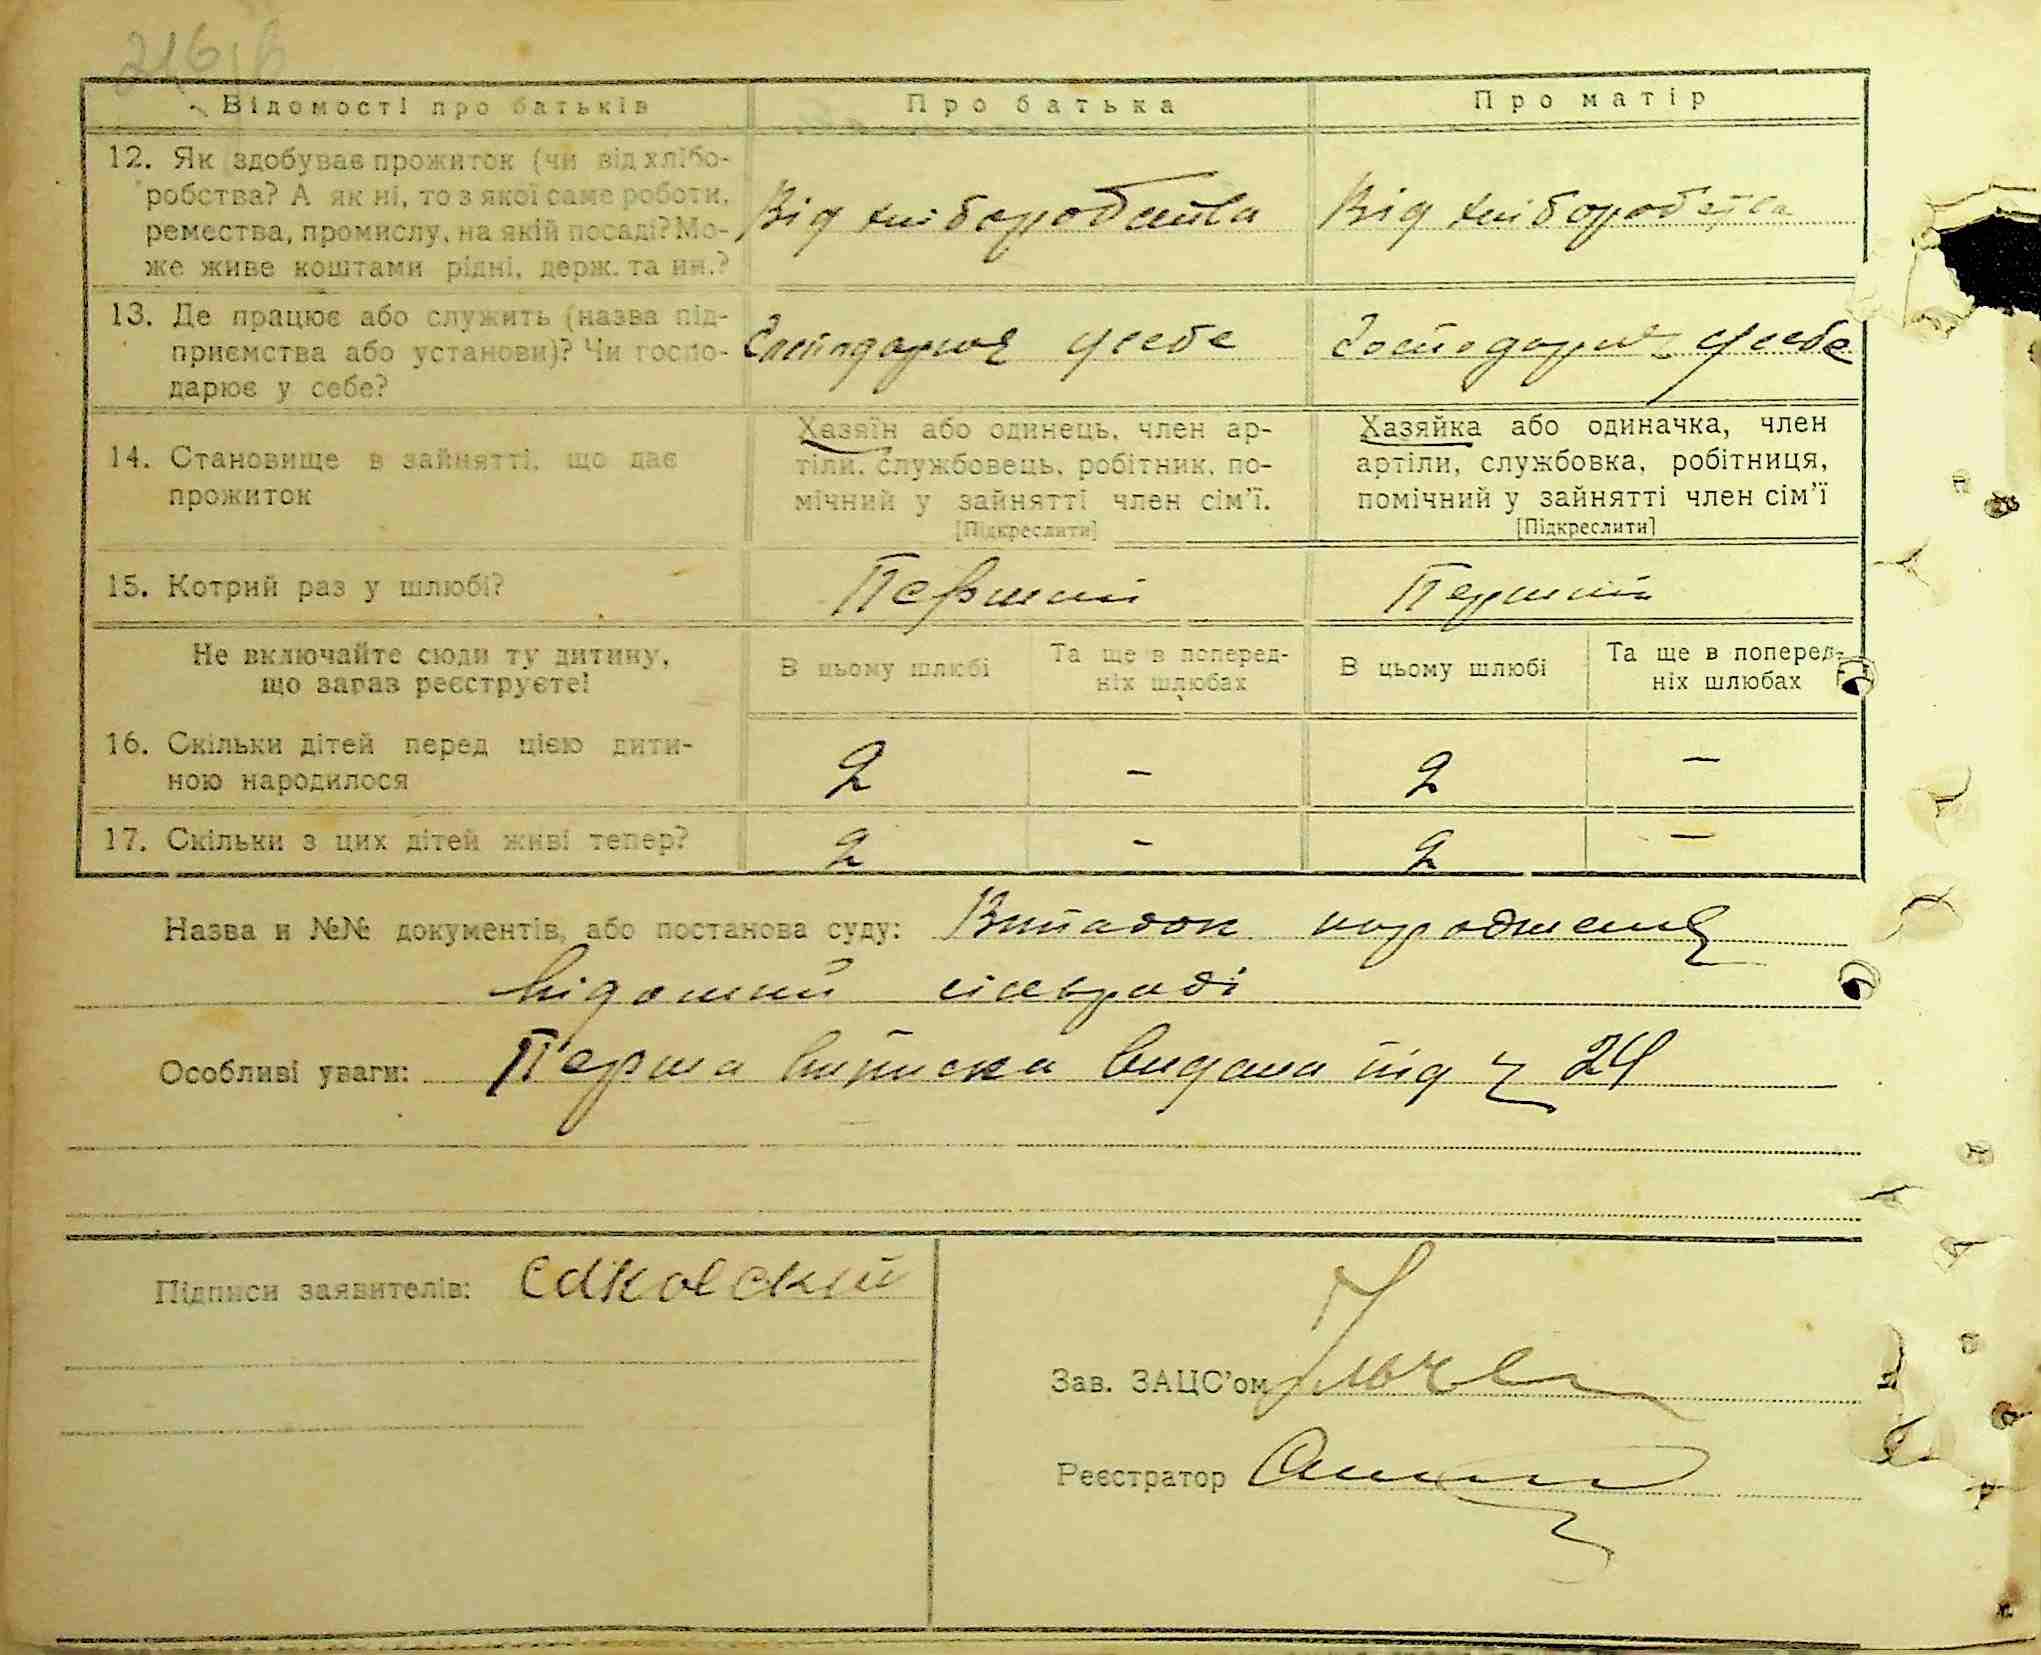 Відомості про батьків Про батька Про матір
12. Як здобуває прожиток (чи від хлібо-
робства? А як ні, то з якої саме роботи,
ремества, промислу, на якій посаді? Мо-
же живе коштами рідні, держ. та ин.?
Від хліборобства Від хліборобства
13. Де працює або служить (назва під-
приємства або установи)? Чи госпо-
дарює у себе?
Господарює у себе Господарює у себе
14. Становище в зайнятті, що дає
прожиток
Хазяїн або одинець, член ар-
тіли, службовець, робітник, по-
мічний у зайнятті член сім'ї.
[Підкреслити]
Хазяйка або одиначка, член
артіли, службовка, робітниця,
помічний у зайнятті член сім'ї
[Підкреслити]
15. Котрий раз у шлюбі?
Перший Перший
Не включайте сюди ту дитину,
що зараз реєструєте!
В цьому шлюбі
Та ще в поперед-
ніх шлюбах
В цьому шлюбі
Та ще в поперед-
ніх шлюбах
16. Скільки дітей перед цією дити-
ною народилося
2 - 2 -
17. Скільки з цих дітей живі тепер?
2 - 2 -
Назва и №№ документів, або постанова суду: Випадок народження
відомий сільраді
Особливі уваги: Перша виписка видана під ч 24
Підписи заявителів:
Зав. ЗАЦС'ом
Реєстратор